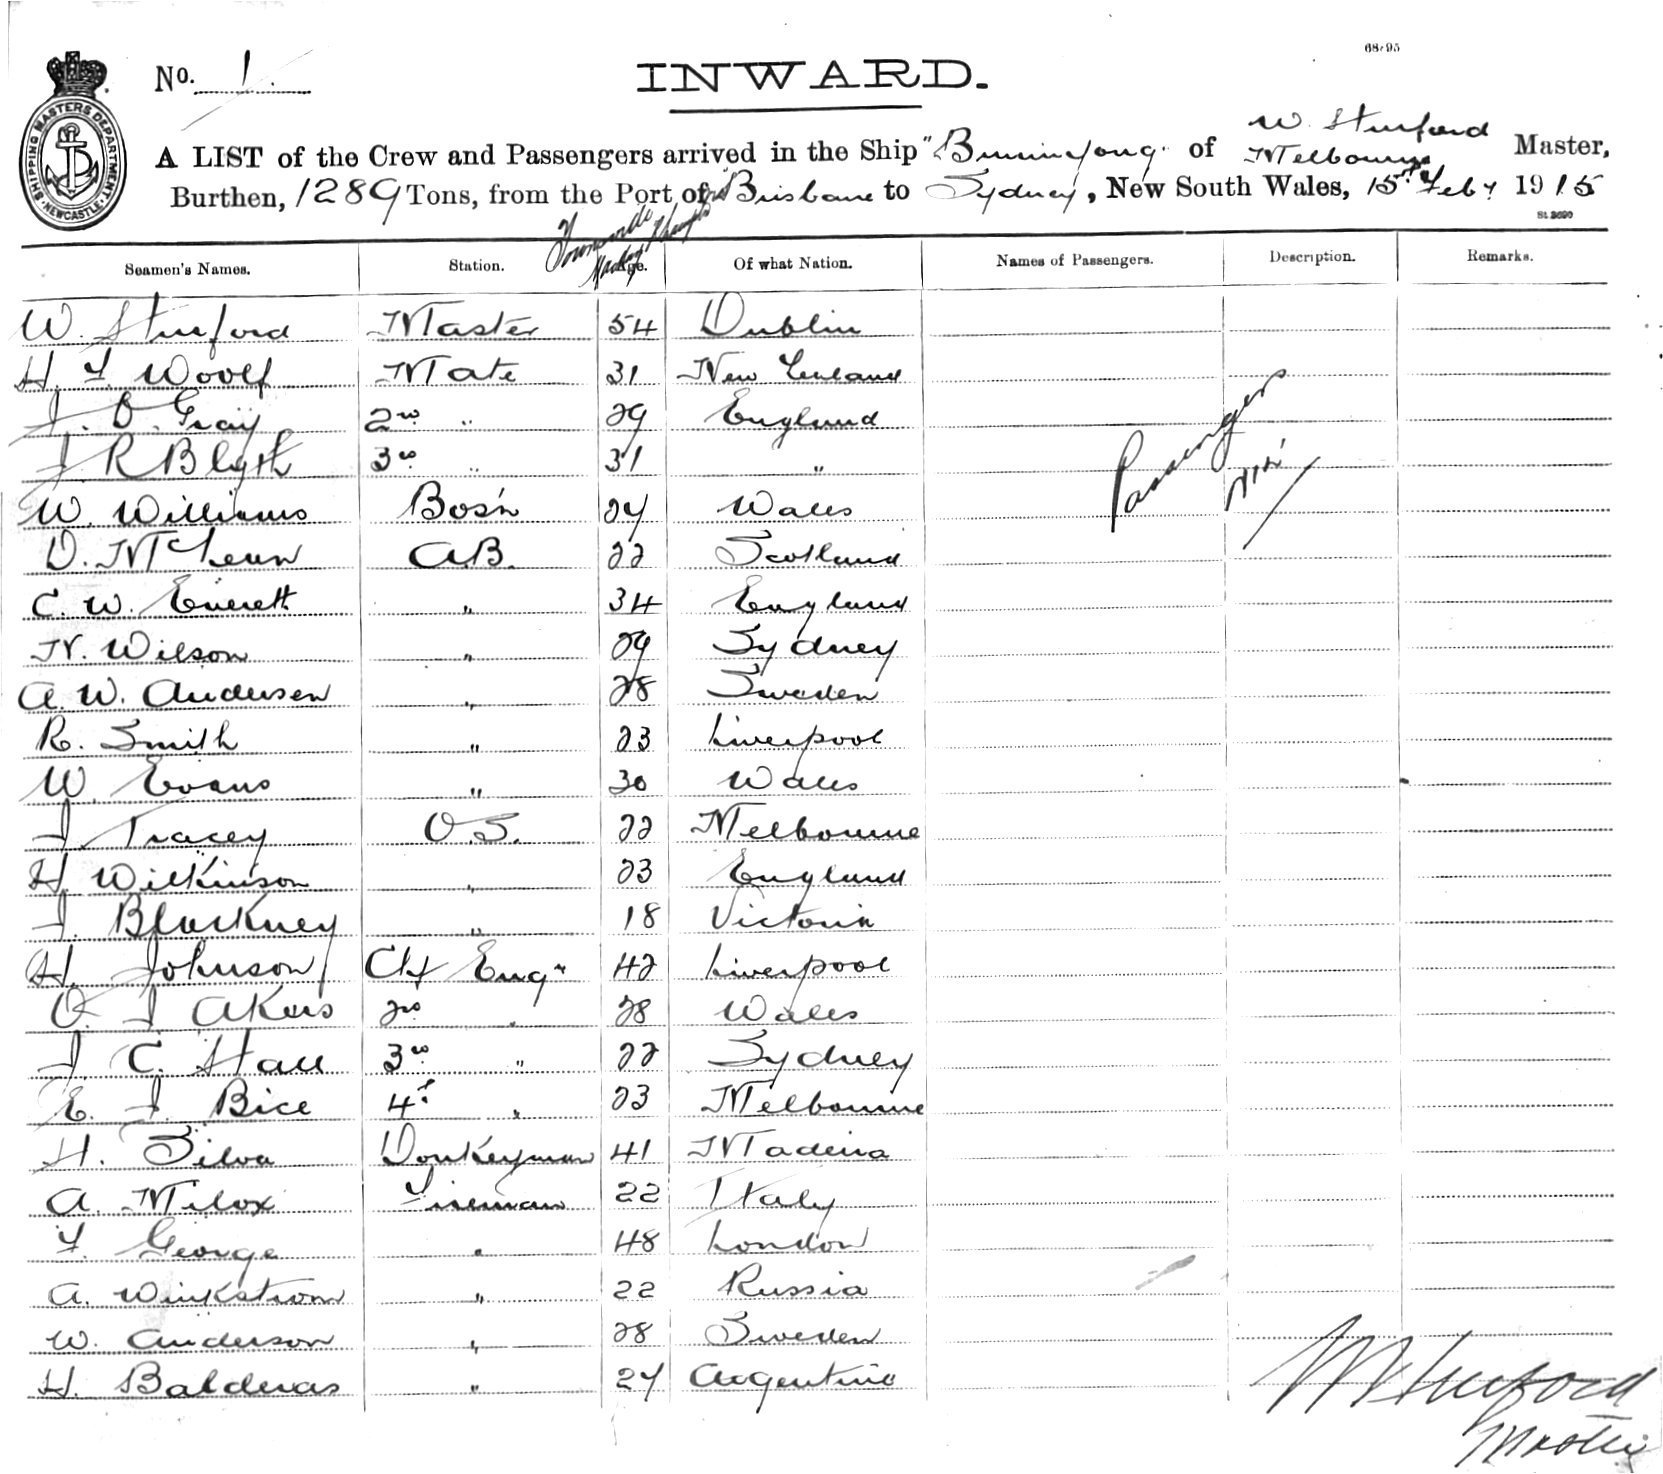 68/95
No. 1.
INWARD.
SHIPPING MASTERS DEPARTMENT
NEWCASTLE
W. Sturford
A LIST of the Crew and Passengers arrived in the Ship "Buninyong" of Melbourne Master,
Burthen, 1289 Tons, from the Port of Brisbane to Sydney, New South Wales, 15th Feby 1915
St. 3690
Townsville
Mackay
Seamen's Names. Station. Age. Of what Nation. Names of Passengers. Description. Remarks.
W. Sturford Master 54 Dublin
H. F. Woolf Mate 31 New Zealand
J. O. Gray 2nd " 29 England
J R Blyth 3rd " 31 "
W. Williams Bos'n 24 Wales
D. McLean A.B. 22 Scotland
C. W. Everett " 34 England
N. Wilson " 29 Sydney
A. W. Andersen " 28 Sweden
R. Smith " 23 Liverpool
W. Evans " 30 Wales
J Tracey O.S. 22 Melbourne
H. Wilkinson " 23 England
J. Blackney " 18 Victoria
H. Johnson Chf Engr 42 Liverpool
O. J. Akers 2nd " 28 Wales
J. C. Hall 3rd " 22 Sydney
E. J. Bice 4th " 23 Melbourne
H. Silva Donkeyman 41 Madeira
A. Milox Fireman 22 Italy
F. George " 48 London
A. Winkstrom " 22 Russia
W. Anderson " 28 Sweden
H. Balderas " 24 Argentino
Passengers
Nil
W Sturford
Master